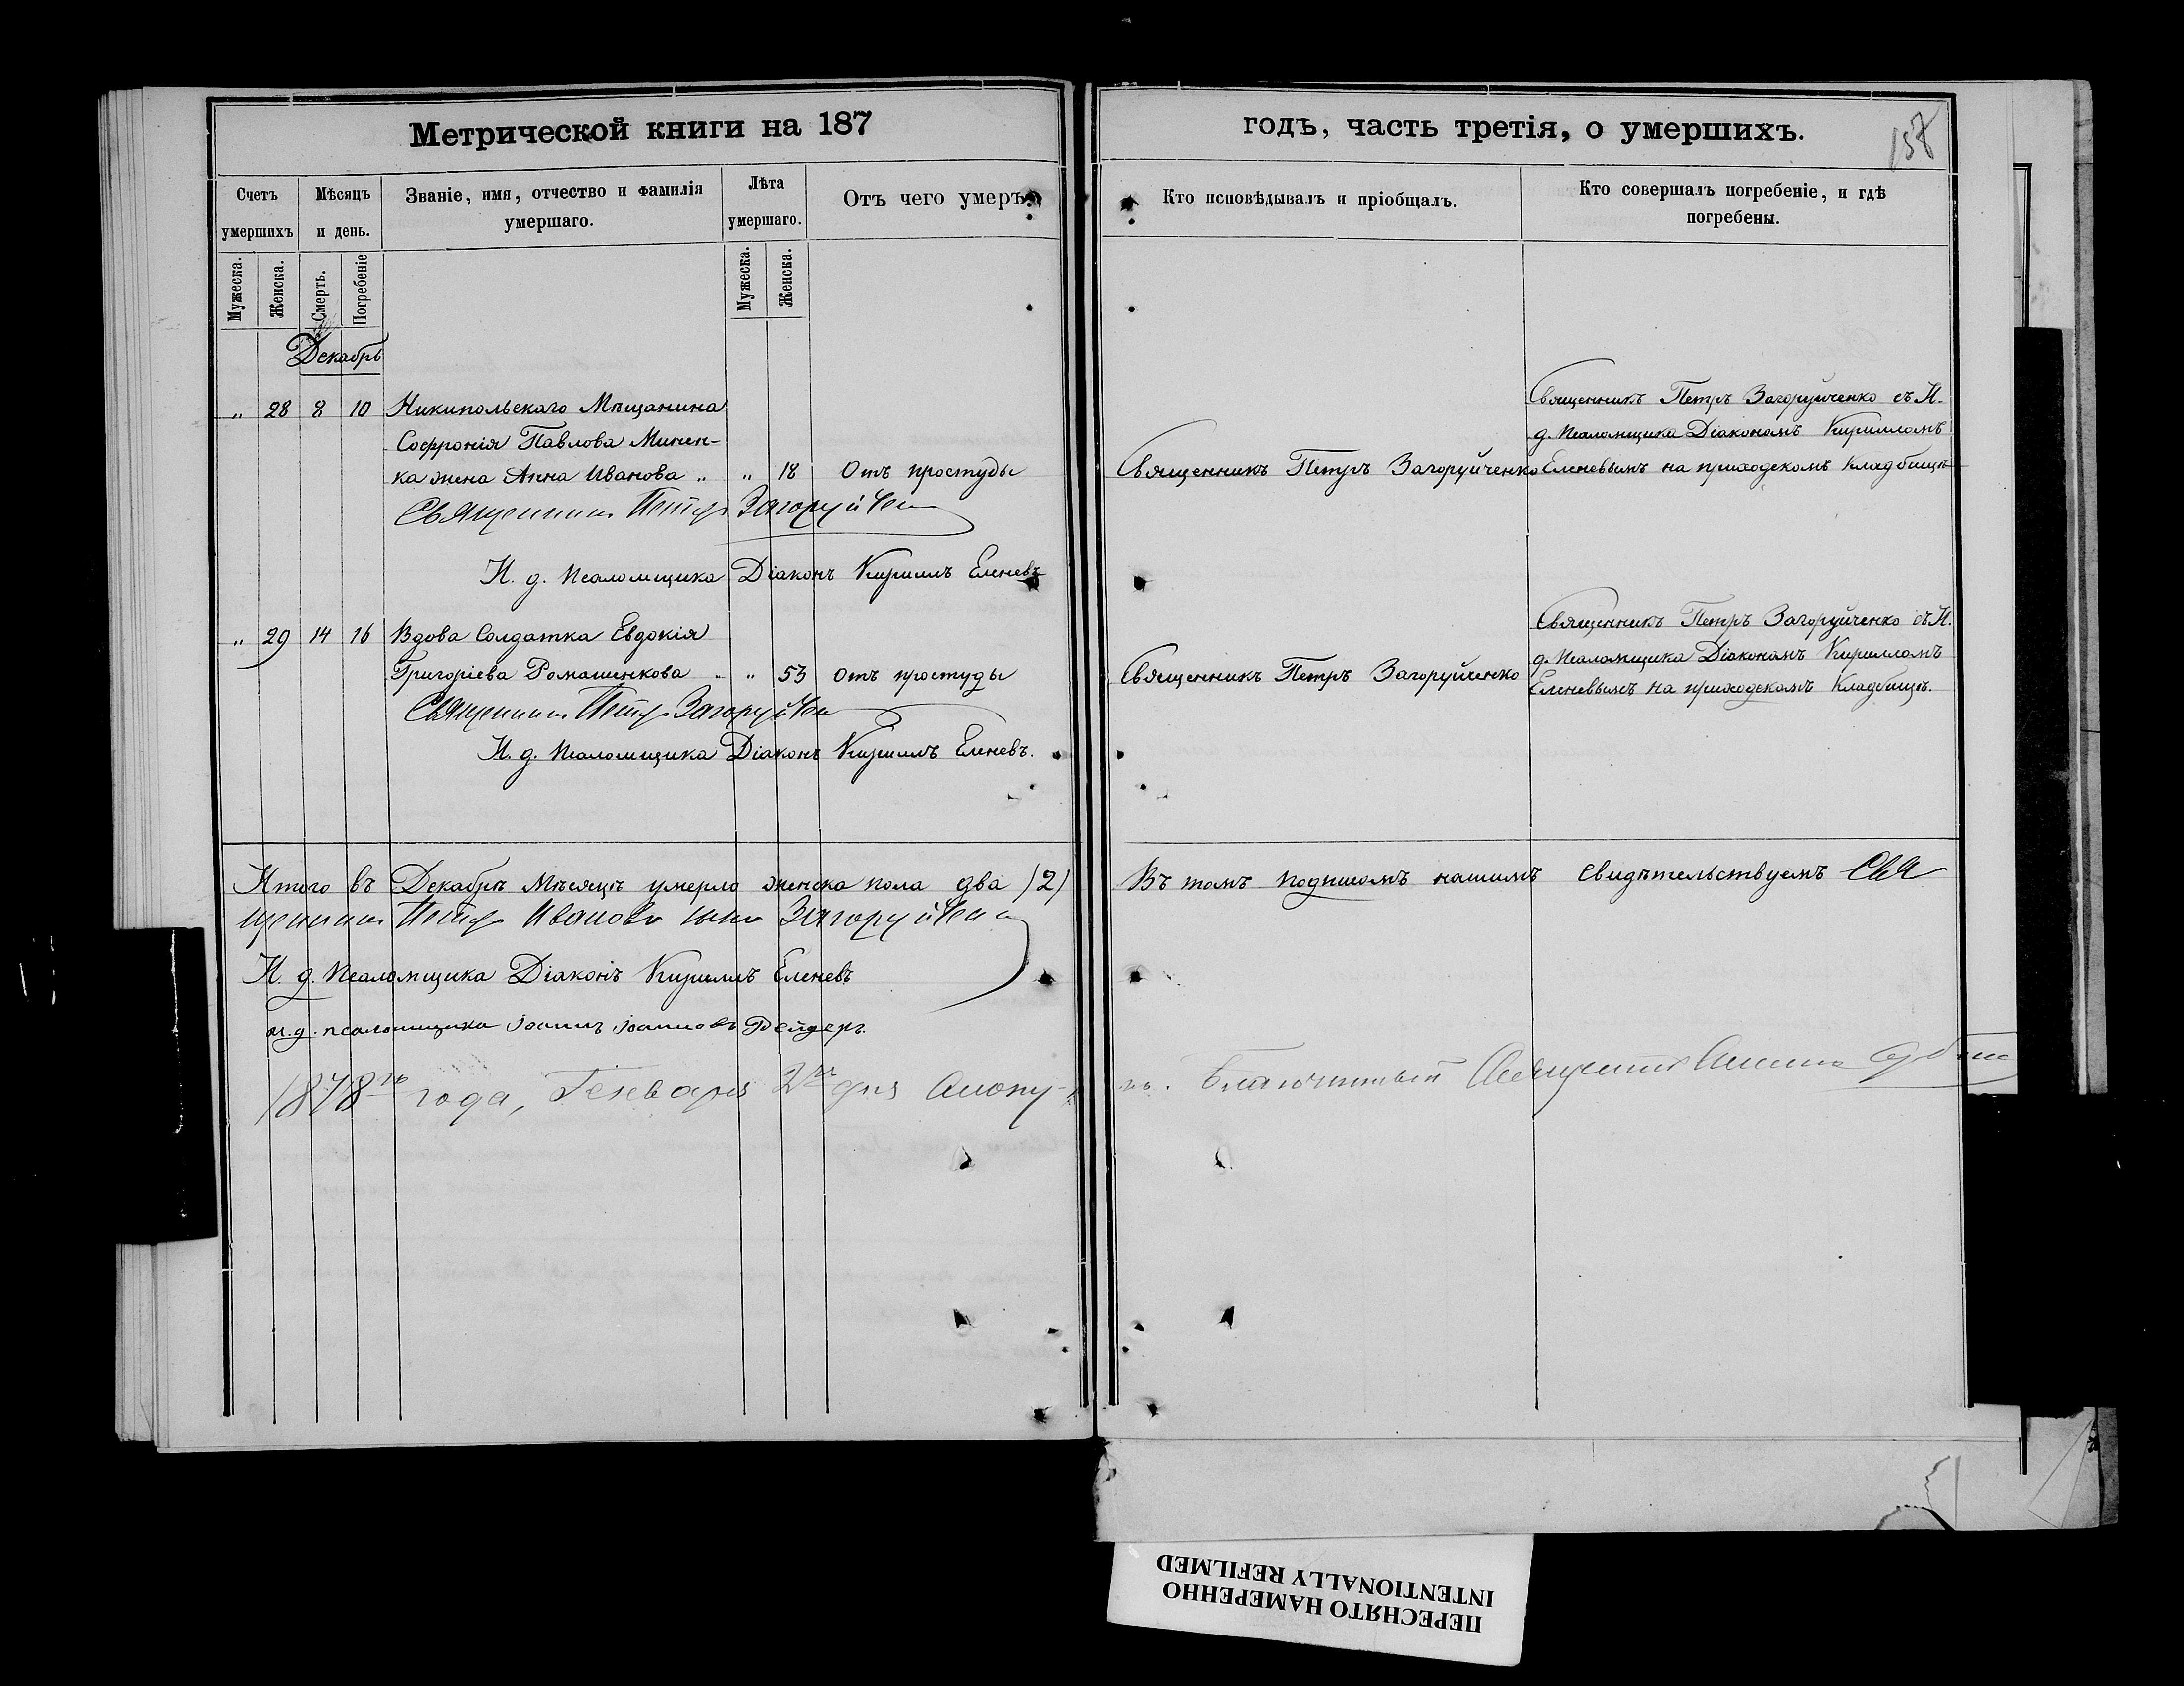 Метрической книги на 187
годъ, часть третія, о умершихъ.
157
Счетъ умершихъ
Мѣсяцъ и день.
Званіе, имя, отчество и фамилія умершаго.
Лѣта умершаго.
Отъ чего умеръ
Кто исповѣдывалъ и пріобщалъ.
Кто совершалъ погребеніе, и гдѣ погребены.
Мужеска.
Женска.
Смерть.
Погребеніе
Мужеска.
Женска.
Декабрь
„ 28 8 10 Никипольскаго Мѣщанина
Софронія Павлова Минен-
ка жена Анна Иванова „ „ 18 Отъ простуды
Священникъ Петръ Загоруйченко
Священникъ Петръ Загоруйченко съ И.
д. Псаломщика Діакономъ Кирилломъ
Еленевымъ на приходскомъ Кладбищѣ
Священникъ Петръ Загоруйченко
И. д. Псаломщика Діаконъ Кириллъ Еленевъ
„ 29 14 16 Вдова Солдатка Евдокія
Григоріева Ромашенкова „ „ 53 отъ простуды
Священникъ Петръ Загоруйченко
Священникъ Петръ Загоруйченко съ И.
д. Псаломщика Діакономъ Кирилломъ
Еленевымъ на приходскомъ Кладбищѣ.
Священникъ Петръ Загоруйченко
И. д. Псаломщика Діаконъ Кириллъ Еленевъ.
Итого въ Декабрѣ Мѣсяцѣ умерло женска пола два /2/
Въ томъ подписомъ нашимъ свидѣтельствуемъ Свя
щенникъ Петръ Ивановъ сынъ Загоруйченко
И. д. Псаломщика Діаконъ Кириллъ Еленевъ
и. д. псаломщика Іоаннъ Іоанновъ
1878го года, Генваря 2го дня
Благочинный Священникъ
ПЕРЕСНЯТО НАМЕРЕННО
INTENTIONALLY REFILMED